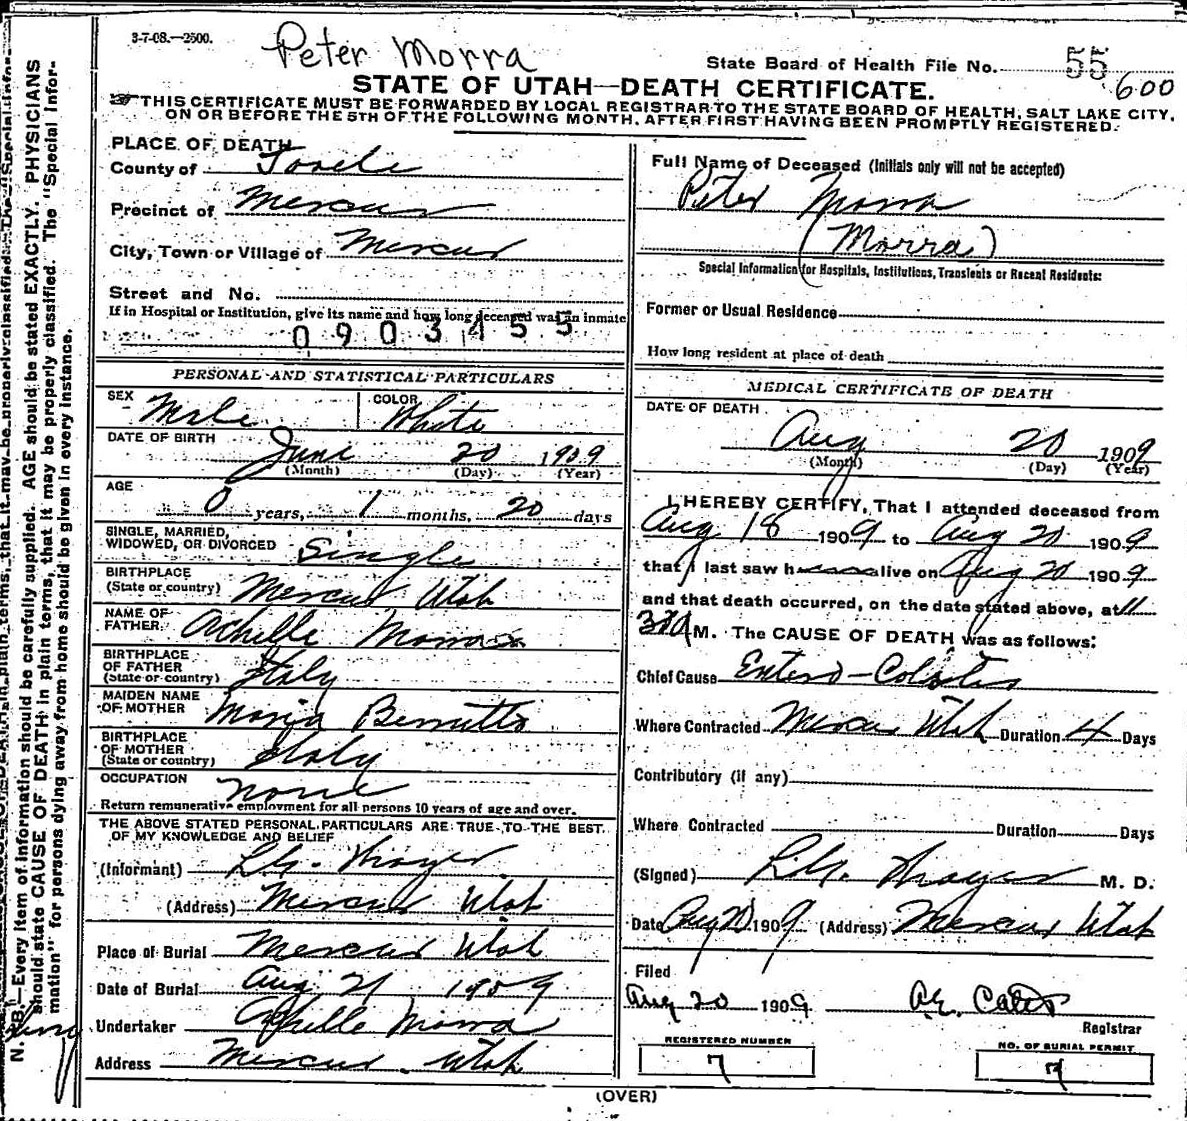 3-7-08.—2500.
Peter Morra
State Board of Health File No. 55
600
STATE OF UTAH—DEATH CERTIFICATE.
THIS CERTIFICATE MUST BE FORWARDED BY LOCAL REGISTRAR TO THE STATE BOARD OF HEALTH, SALT LAKE CITY,
ON OR BEFORE THE 5TH OF THE FOLLOWING MONTH, AFTER FIRST HAVING BEEN PROMPTLY REGISTERED.
N. B.—Every item of information should be carefully supplied. AGE should be stated EXACTLY. PHYSICIANS
should state CAUSE OF DEATH in plain terms, that it may be properly classified. The "Special Infor-
mation" for persons dying away from home should be given in every instance.
PLACE OF DEATH
County of Tooele
Precinct of Mercur
City, Town or Village of Mercur
Street and No.
If in Hospital or Institution, give its name and how long deceased was an inmate
0903455
PERSONAL AND STATISTICAL PARTICULARS
SEX Male COLOR White
DATE OF BIRTH June 20 1909
(Month) (Day) (Year)
AGE
0 years, 1 months, 20 days
SINGLE, MARRIED,
WIDOWED, OR DIVORCED Single
BIRTHPLACE
(State or country) Mercur Utah
NAME OF
FATHER Achille Morra
BIRTHPLACE
OF FATHER
(State or country) Italy
MAIDEN NAME
OF MOTHER Maria
BIRTHPLACE
OF MOTHER
(State or country) Italy
OCCUPATION None
Return remunerative employment for all persons 10 years of age and over.
THE ABOVE STATED PERSONAL PARTICULARS ARE TRUE TO THE BEST
OF MY KNOWLEDGE AND BELIEF
(Informant)
(Address) Mercur Utah
Place of Burial Mercur Utah
Date of Burial Aug 21 1909
Undertaker Achille Morra
Address Mercur Utah
Full Name of Deceased (Initials only will not be accepted)
Peter Morra
(Morra)
Special Information for Hospitals, Institutions, Transients or Recent Residents:
Former or Usual Residence
How long resident at place of death
MEDICAL CERTIFICATE OF DEATH
DATE OF DEATH
Aug 20 1909
(Month) (Day) (Year)
I HEREBY CERTIFY, That I attended deceased from
Aug 18 1909 to Aug 20 1909
that I last saw h alive on Aug 20 1909
and that death occurred, on the date stated above, at 11
M. The CAUSE OF DEATH was as follows:
Chief Cause Entero-Colitis
Where Contracted Mercur Utah Duration 4 Days
Contributory (if any)
Where Contracted Duration Days
(Signed) M. D.
Date Aug 20 1909 (Address) Mercur Utah
Filed
Aug 20 1909
Registrar
REGISTERED NUMBER
7
NO. OF BURIAL PERMIT
7
(OVER)